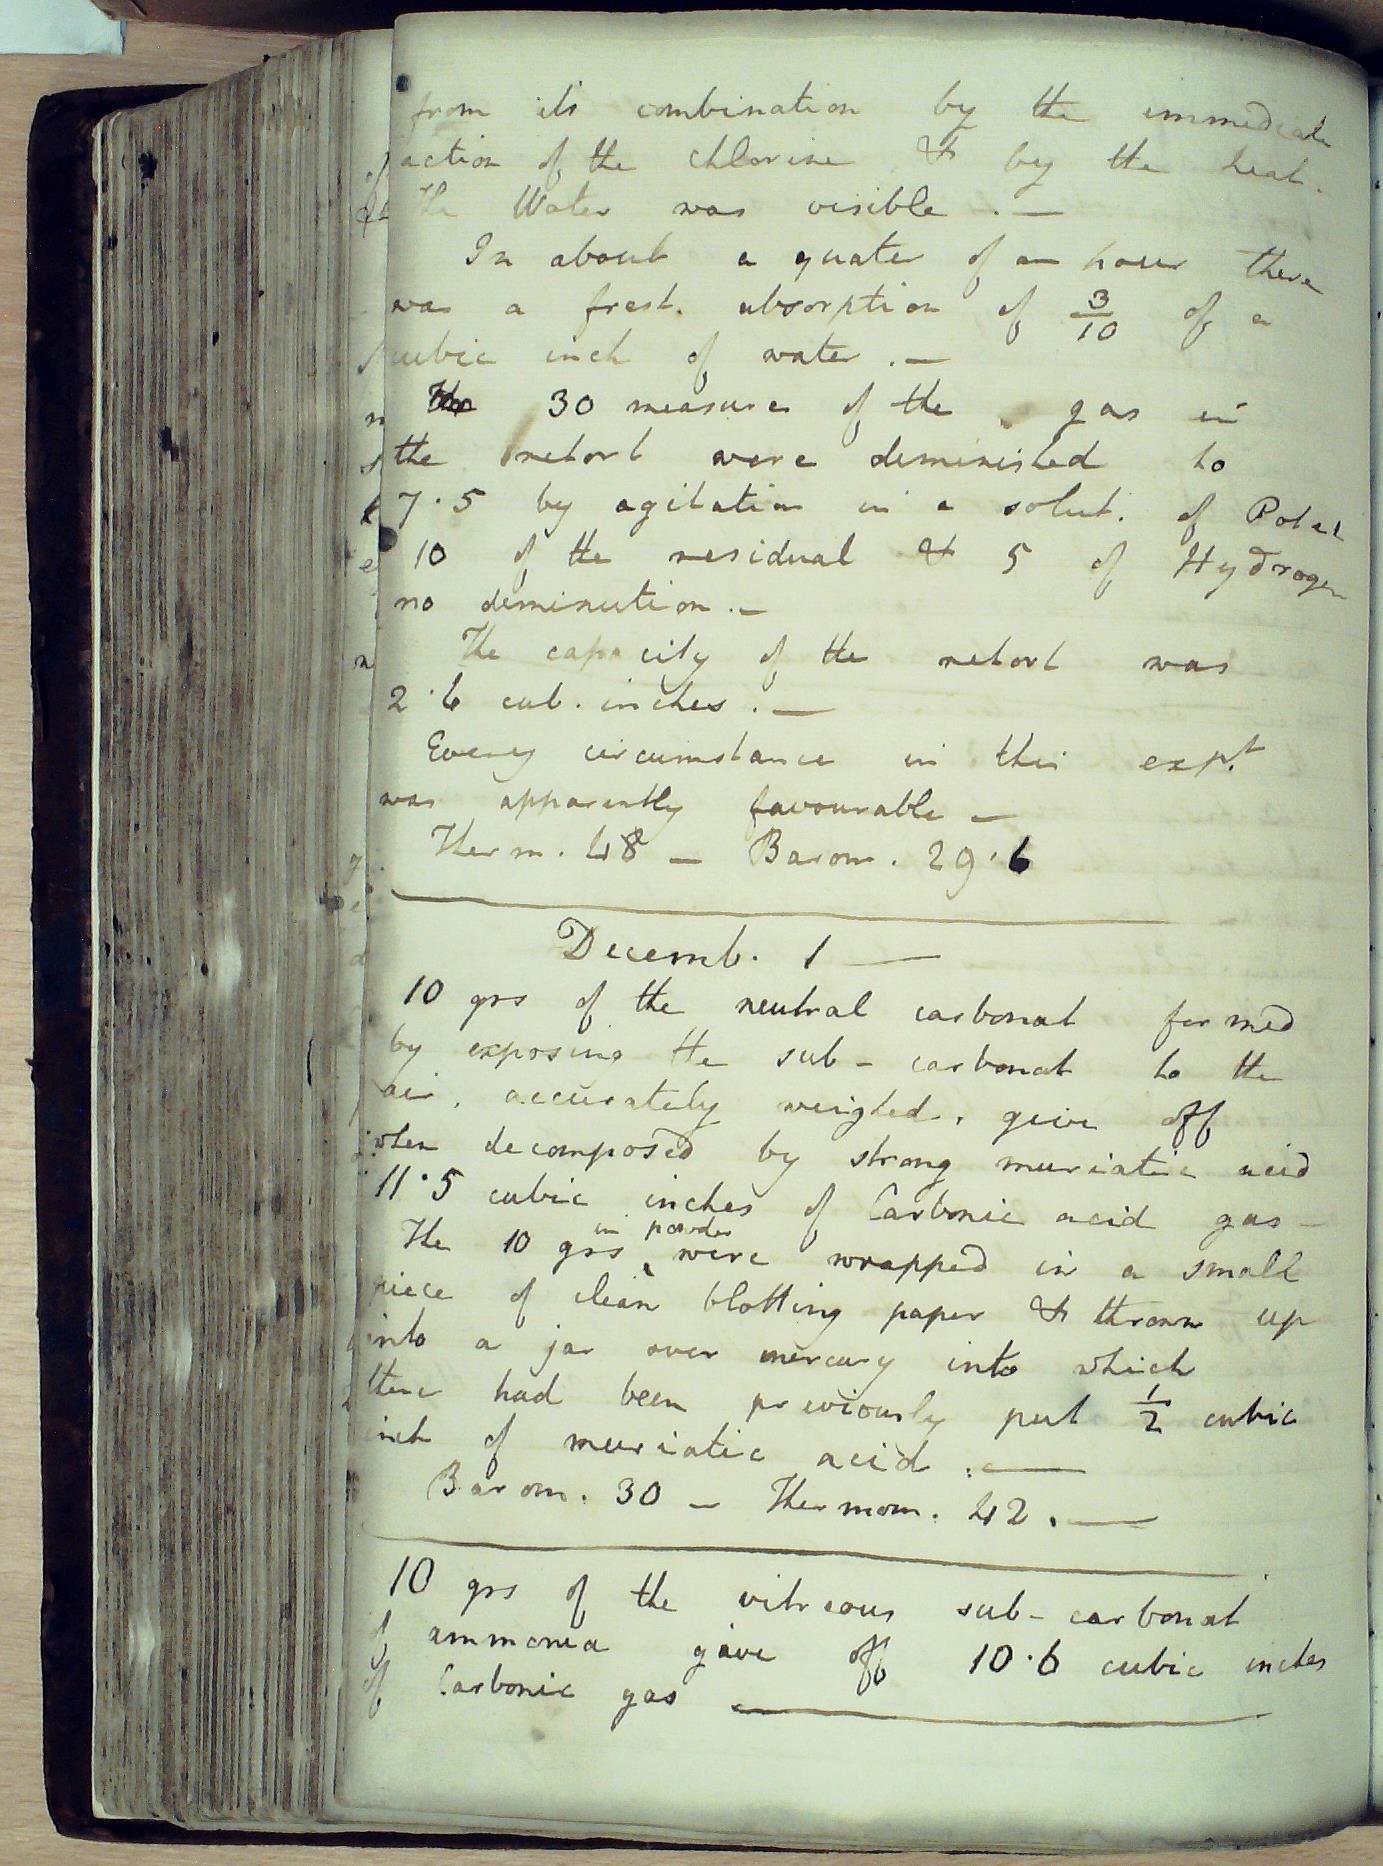 from its combination by the immediate
action of the chlorine & by the heat.
The Water was visible . —
In about a quater of an hour there
was a fresh. absorption of 3/10 of a
cubic inch of water . —
30 measures of the gas in
the retort were diminished to
7.5 by agitation in a solut. of Potas
10 of the residual & 5 of Hydrogen
no diminution . —
The capacity of the retort was
2.6 cub. inches . —
Every circumstance in this expt
was apparently favourable —
Therm. 48 — Barom. 29.6
Decemb. 1 —
10 grs of the neutral carbonat formed
by exposing the sub-carbonat to the
air, accurately weighed, give off
when decomposed by strong muriatic acid
11.5 cubic inches of Carbonic acid gas —
in powder
The 10 grs ‸ were wrapped in a small
piece of clean blotting paper & thrown up
into a jar over mercury into which
there had been previously put 1/2 cubic
inch of muriatic acid . —
Barom. 30 — Thermom. 42 . —
10 grs of the vitreous sub-carbonat
of ammonia gave off 10.6 cubic inches
of Carbonic gas —